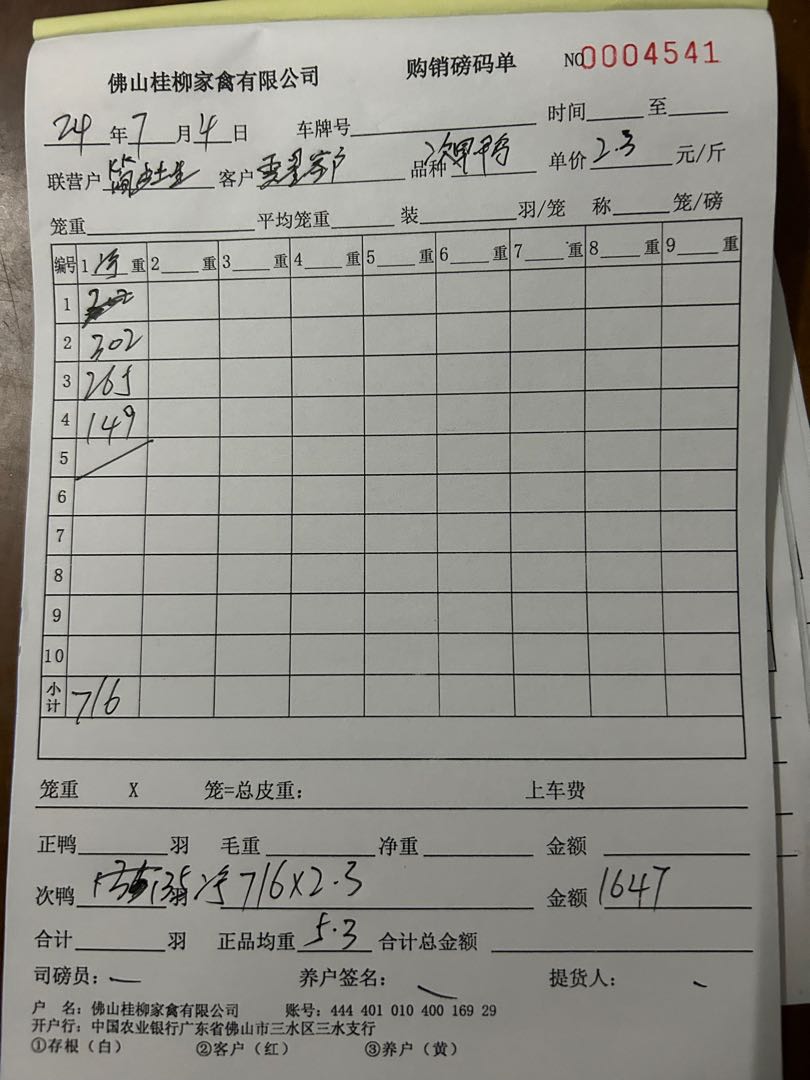 佛山桂柳家禽有限公司 购销磅码单 NO0004541
24年7月4日 车牌号 时间 至
联营户 客户 品种 次甲鸭 单价 2.3 元/斤
笼重 平均笼重 装 羽/笼 称 笼/磅
编号 1 净 重 2 重 3 重 4 重 5 重 6 重 7 重 8 重 9 重
1
2 302
3 265
4 149
5
6
7
8
9
10
小计 716
笼重 X 笼=总皮重: 上车费
正鸭 羽 毛重 净重 金额
次鸭 135 羽 净 716X2.3 金额 1647
合计 羽 正品均重 5.3 合计总金额
司磅员: 养户签名: 提货人:
户 名: 佛山桂柳家禽有限公司 账号: 444 401 010 400 169 29
开户行: 中国农业银行广东省佛山市三水区三水支行
①存根(白) ②客户(红) ③养户(黄)